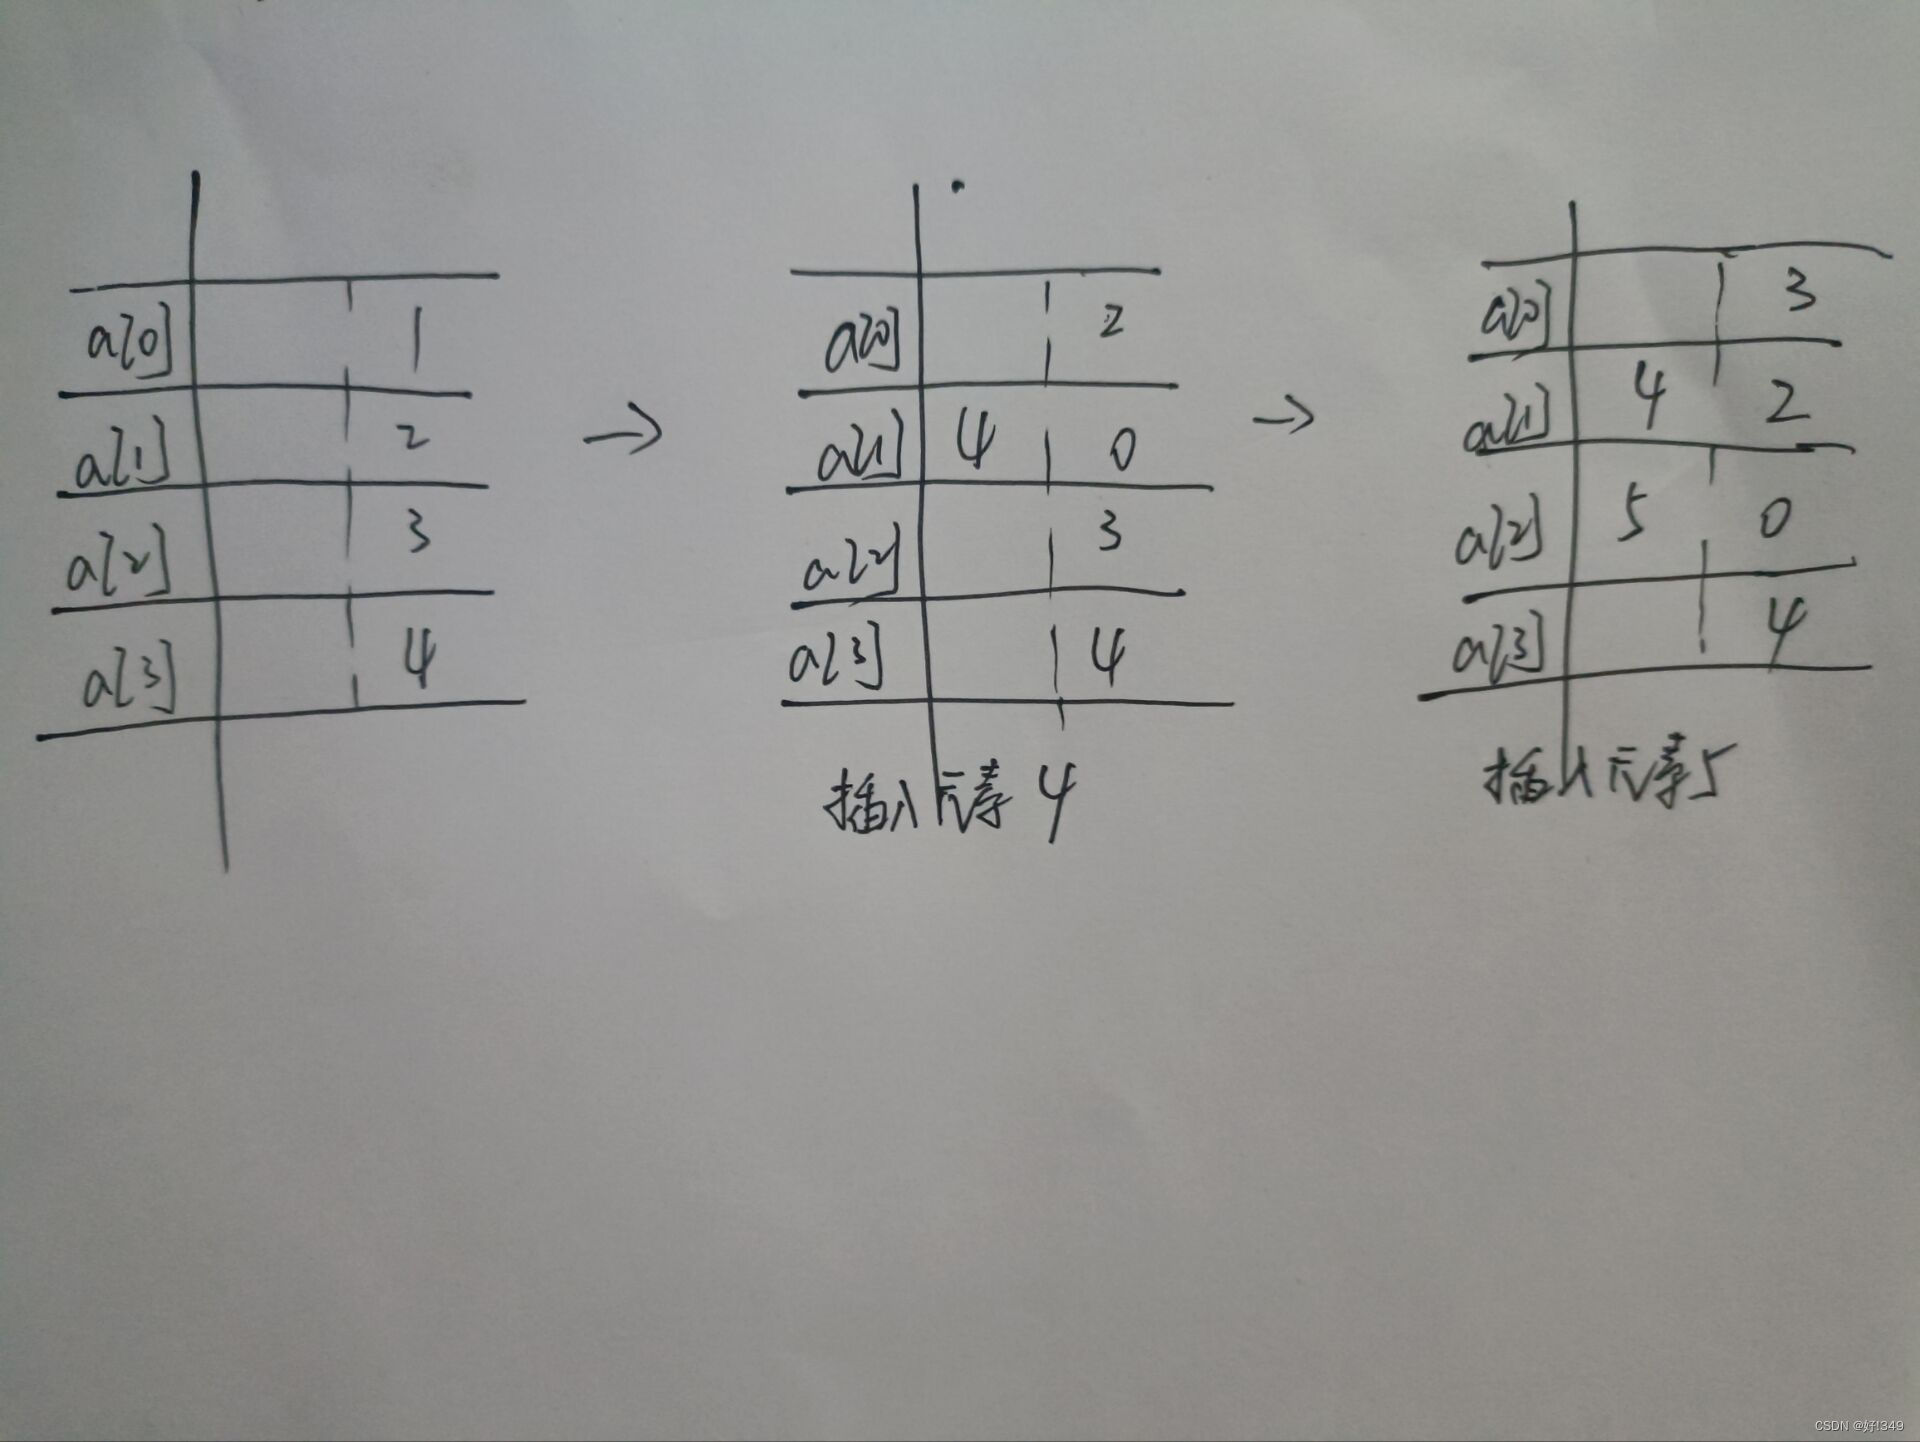 a[0] 1
a[1] 2
a[2] 3
a[3] 4
→
a[0] 2
a[1] 4 0
a[2] 3
a[3] 4
插入元素 4
→
a[0] 3
a[1] 4 2
a[2] 5 0
a[3] 4
插入元素5
CSDN @好!349